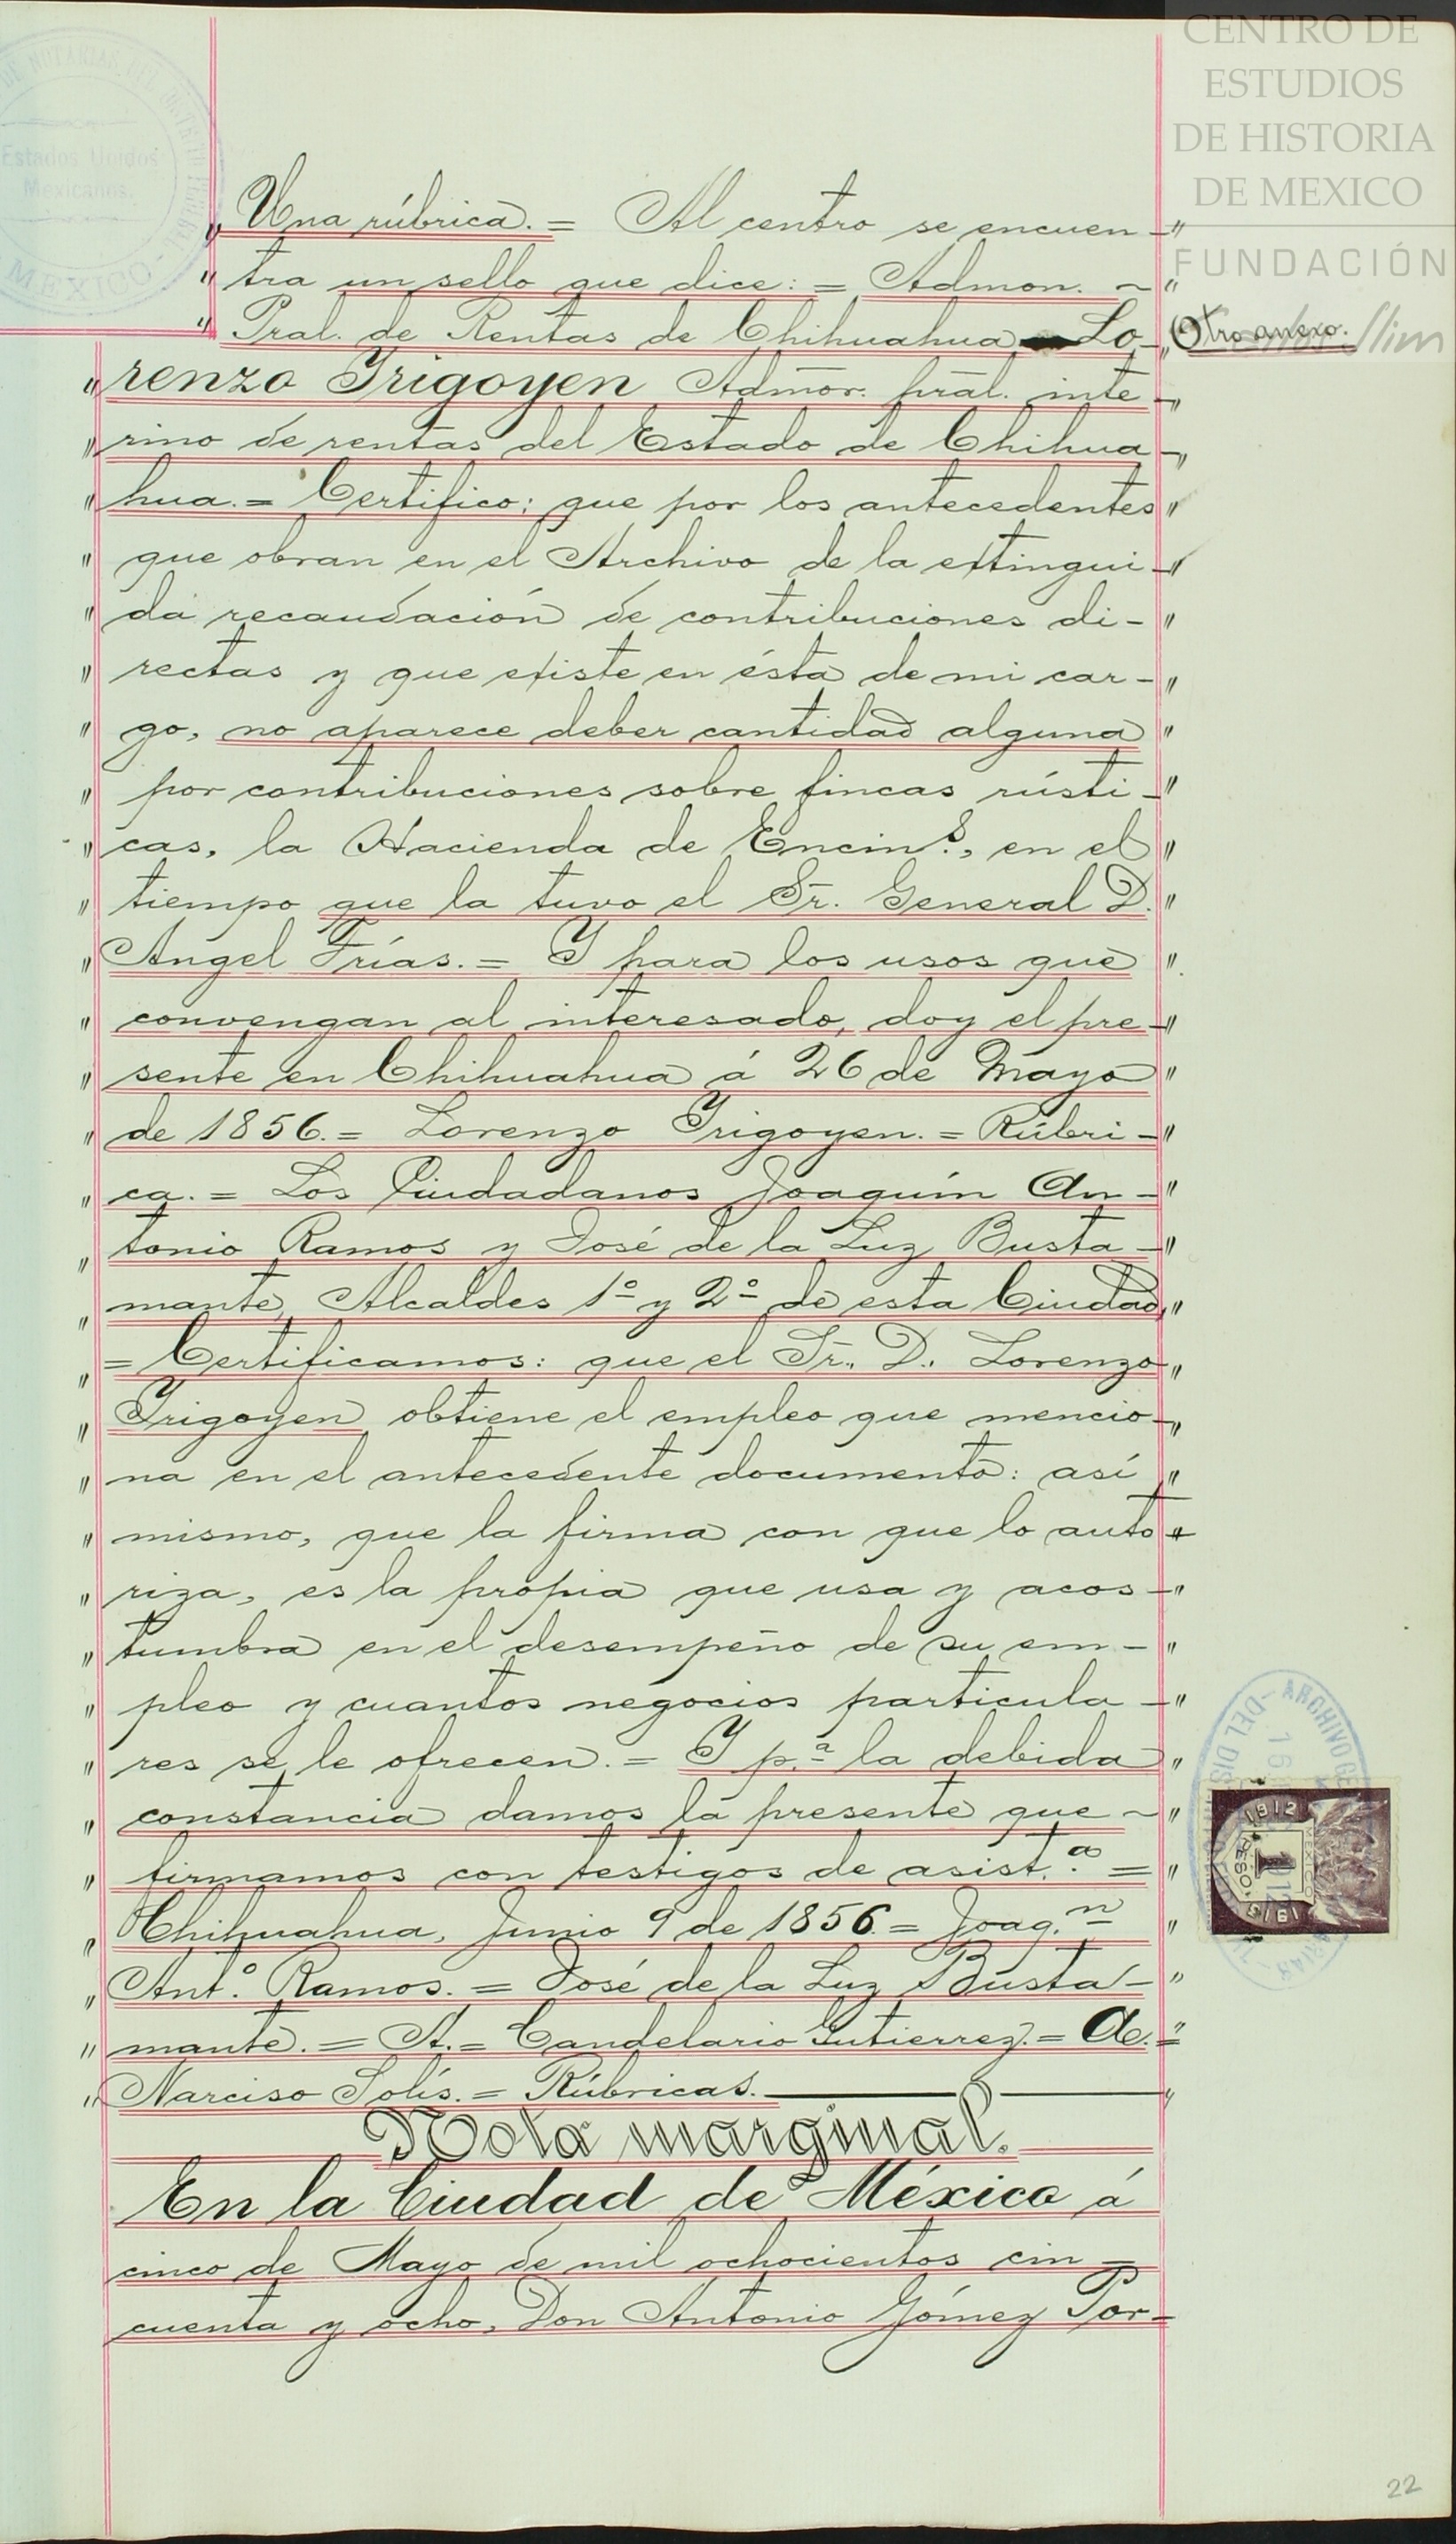 CENTRO DE
ESTUDIOS
DE HISTORIA
DE MEXICO
FUNDACIÓN
Carlos Slim
Estados Unidos
Mexicanos.
MEXICO
" Una rúbrica. = Al centro se encuen-"
" tra un sello que dice: = Admon. ~"
" Pral. de Rentas de Chihuahua - Lo-"
Otro anexo.
" renzo Yrigoyen Admor. pral. inte-"
" rino de rentas del Estado de Chihua-"
" hua. = Certifico: que por los antecedentes "
" que obran en el Archivo de la extingui-"
" da recaudación de contribuciones di-"
" rectas y que existe en ésta de mi car-"
" go, no aparece deber cantidad alguna "
" por contribuciones sobre fincas rústi-"
" cas, la Hacienda de Encin.s, en el "
" tiempo que la tuvo el Sr. General D. "
" Angel Frías. = Y para los usos que "
" convengan al interesado, doy el pre-"
" sente en Chihuahua á 26 de Mayo "
" de 1856. = Lorenzo Yrigoyen. = Rúbri-"
" ca. = Los Ciudadanos Joaquín An-"
" tonio Ramos y José de la Luz Busta-"
" mante, Alcaldes 1º y 2º de esta Ciudad, "
" = Certificamos: que el Sr. D. Lorenzo "
" Yrigoyen obtiene el empleo que mencio-"
" na en el antecedente documento: así "
" mismo, que la firma con que lo auto-"
" riza, es la propia que usa y acos-"
" tumbra en el desempeño de su em-"
" pleo y cuantos negocios particula-"
" res se le ofrecen. = Y p.ª la debida "
" constancia damos la presente que ~"
" firmamos con testigos de asist.ª = "
" Chihuahua, Junio 9 de 1856. = Joaq.n "
" Ant.º Ramos. = José de la Luz Busta-"
" mante. = A. = Candelario Gutierrez. = A. = "
" Narciso Solís. = Rúbricas. "
Nota marginal.
En la Ciudad de México á
cinco de Mayo de mil ochocientos cin-
cuenta y ocho, Don Antonio Gómez Por-
1912
1
PESO
MEXICO
1913
22